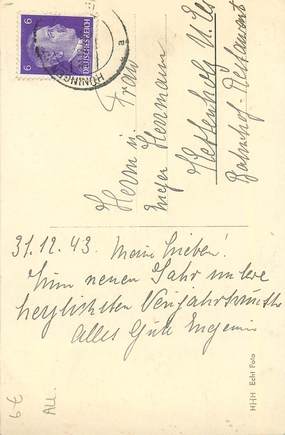 6
6
DEUTSCHES REICH
HÜNINGEN
a
Herrn u. Frau
Meyer Hermann
Hessenhof U. Els
Bahnhof-Restaurant
31.12.43. Meine Lieben!
Zum neuen Jahr unsere
herzlichsten Neujahrswünsche
Alles Gute Eugenie
HHH Echt Foto
6 €
ALL.